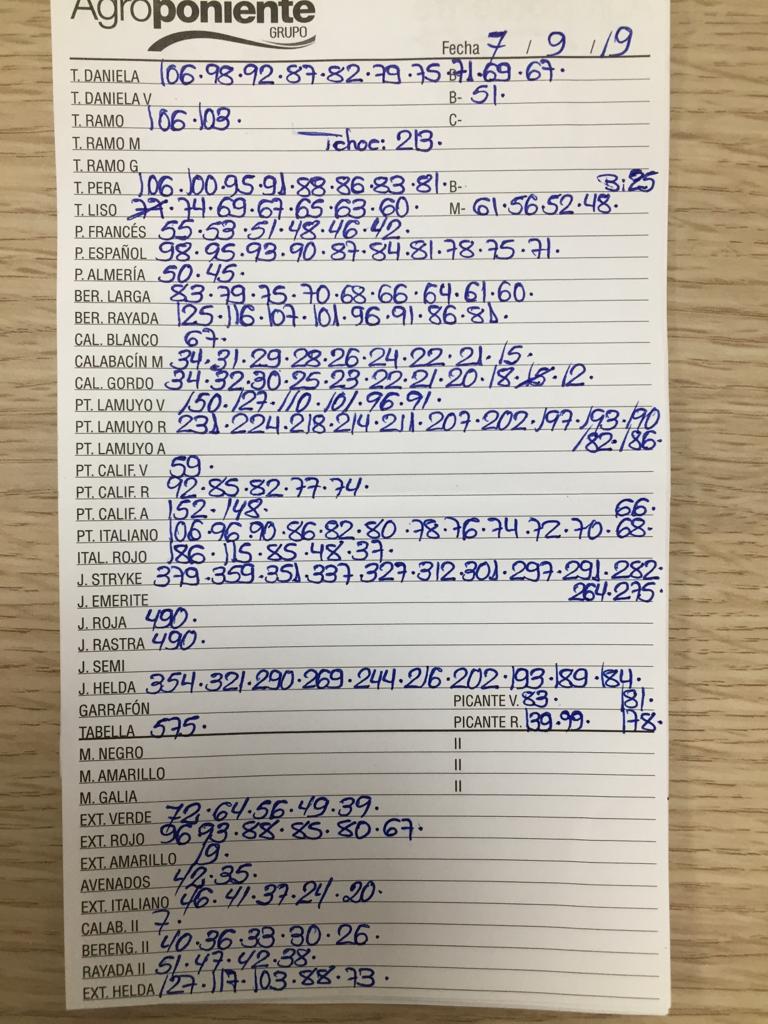 Agroponiente
GRUPO
Fecha 7 / 9 / 19
T. DANIELA 106·98·92·87·82·79·75·71·69·67·
T. DANIELA V B- 51·
T. RAMO 106·103· C-
T. RAMO M Tchoc: 213·
T. RAMO G
T. PERA 106·100·95·91·88·86·83·81· B- B: 25
T. LISO 77·74·69·67·65·63·60· M- 61·56·52·48·
P. FRANCÉS 55·53·51·48·46·42·
P. ESPAÑOL 98·95·93·90·87·84·81·78·75·71·
P. ALMERÍA 50·45·
BER. LARGA 83·79·75·70·68·66·64·61·60·
BER. RAYADA 125·116·107·101·96·91·86·81·
CAL. BLANCO 67·
CALABACÍN M 34·31·29·28·26·24·22·21·15·
CAL. GORDO 34·32·30·25·23·22·21·20·18·15·12·
PT. LAMUYO V 150·127·110·101·96·91·
PT. LAMUYO R 231·224·218·214·211·207·202·197·193·190
PT. LAMUYO A 182·186·
PT. CALIF. V 59·
PT. CALIF. R 92·85·82·77·74·
PT. CALIF. A 152·148· 66·
PT. ITALIANO 106·96·90·86·82·80·78·76·74·72·70·68·
ITAL. ROJO 186·115·85·48·37·
J. STRYKE 379·359·351·337·327·312·301·297·291·282·
J. EMERITE 264·275·
J. ROJA 490·
J. RASTRA 490·
J. SEMI
J. HELDA 354·321·290·269·244·216·202·193·189·184·
GARRAFÓN PICANTE V. 83· 181·
TABELLA 575· PICANTE R. 139·99· 178·
M. NEGRO II
M. AMARILLO II
M. GALIA II
EXT. VERDE 72·64·56·49·39·
EXT. ROJO 96·93·88·85·80·67·
EXT. AMARILLO 19·
AVENADOS 42·35·
EXT. ITALIANO 46·41·37·24·20·
CALAB. II 7·
BERENG. II 40·36·33·30·26·
RAYADA II 51·47·42·38·
EXT. HELDA 127·117·103·88·73·